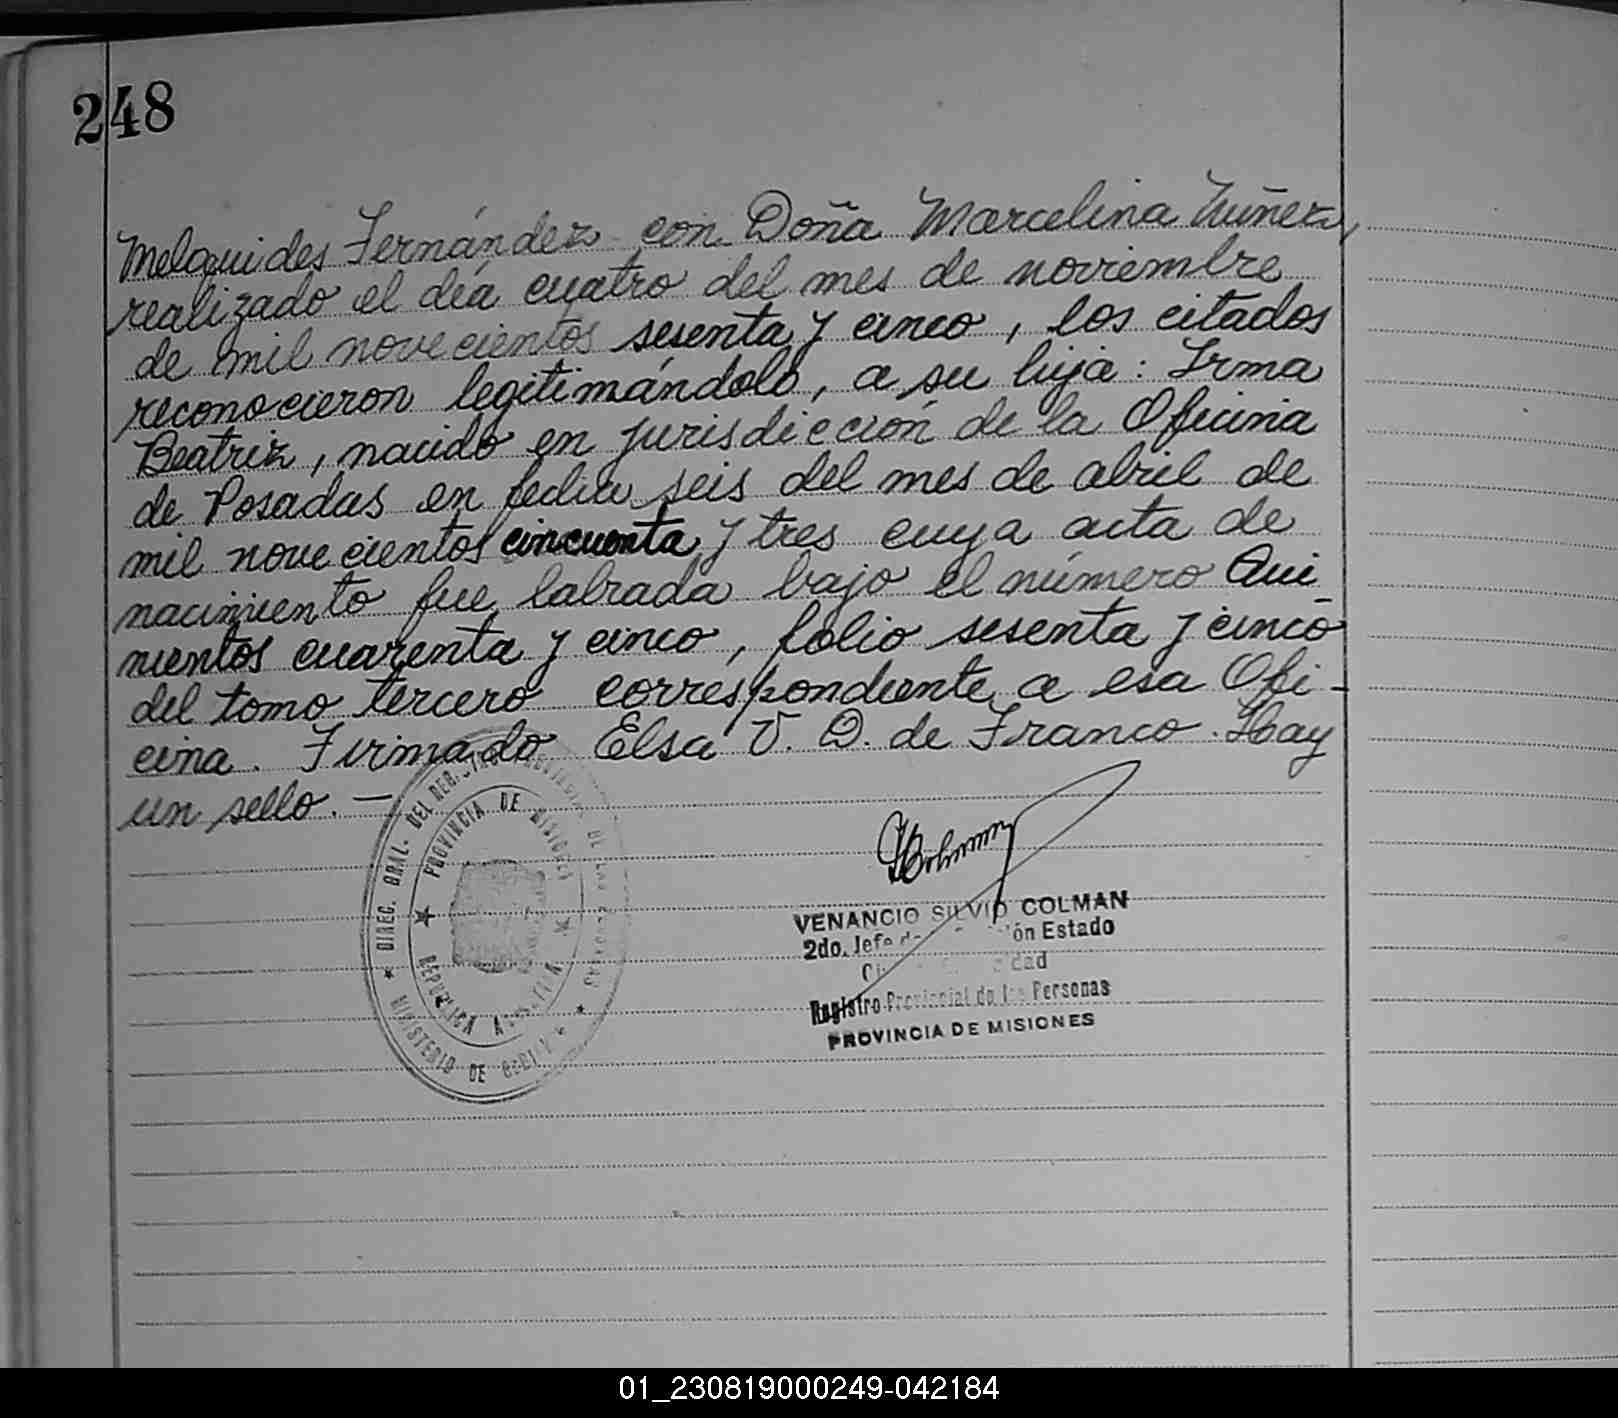 248
Melquides Fernández con Doña Marcelina Nuñez,
realizado el día cuatro del mes de noviembre
de mil novecientos sesenta y cinco, los citados
reconocieron legitimándolo, a su hija: Irma
Beatriz, nacido en jurisdicción de la Oficina
de Posadas en fecha seis del mes de abril de
mil novecientos cincuenta y tres cuya acta de
nacimiento fue labrada bajo el número Qui-
nientos cuarenta y cinco, folio sesenta y cinco
del tomo tercero correspondiente a esa Ofi-
cina. Firmado Elsa V. D. de Franco. Hay
un sello. —
DIREC. GRAL. DEL REG. PROVINCIAL DE LAS PERSONAS
PROVINCIA DE MISIONES
REPUBLICA ARGENTINA
MINISTERIO DE GOBIERNO
VENANCIO SILVIO COLMAN
2do. Jefe de ón Estado
dad
Registro Provincial de las Personas
PROVINCIA DE MISIONES
01_230819000249-042184